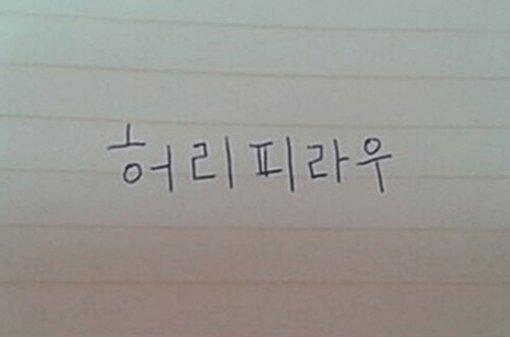 허리피라우